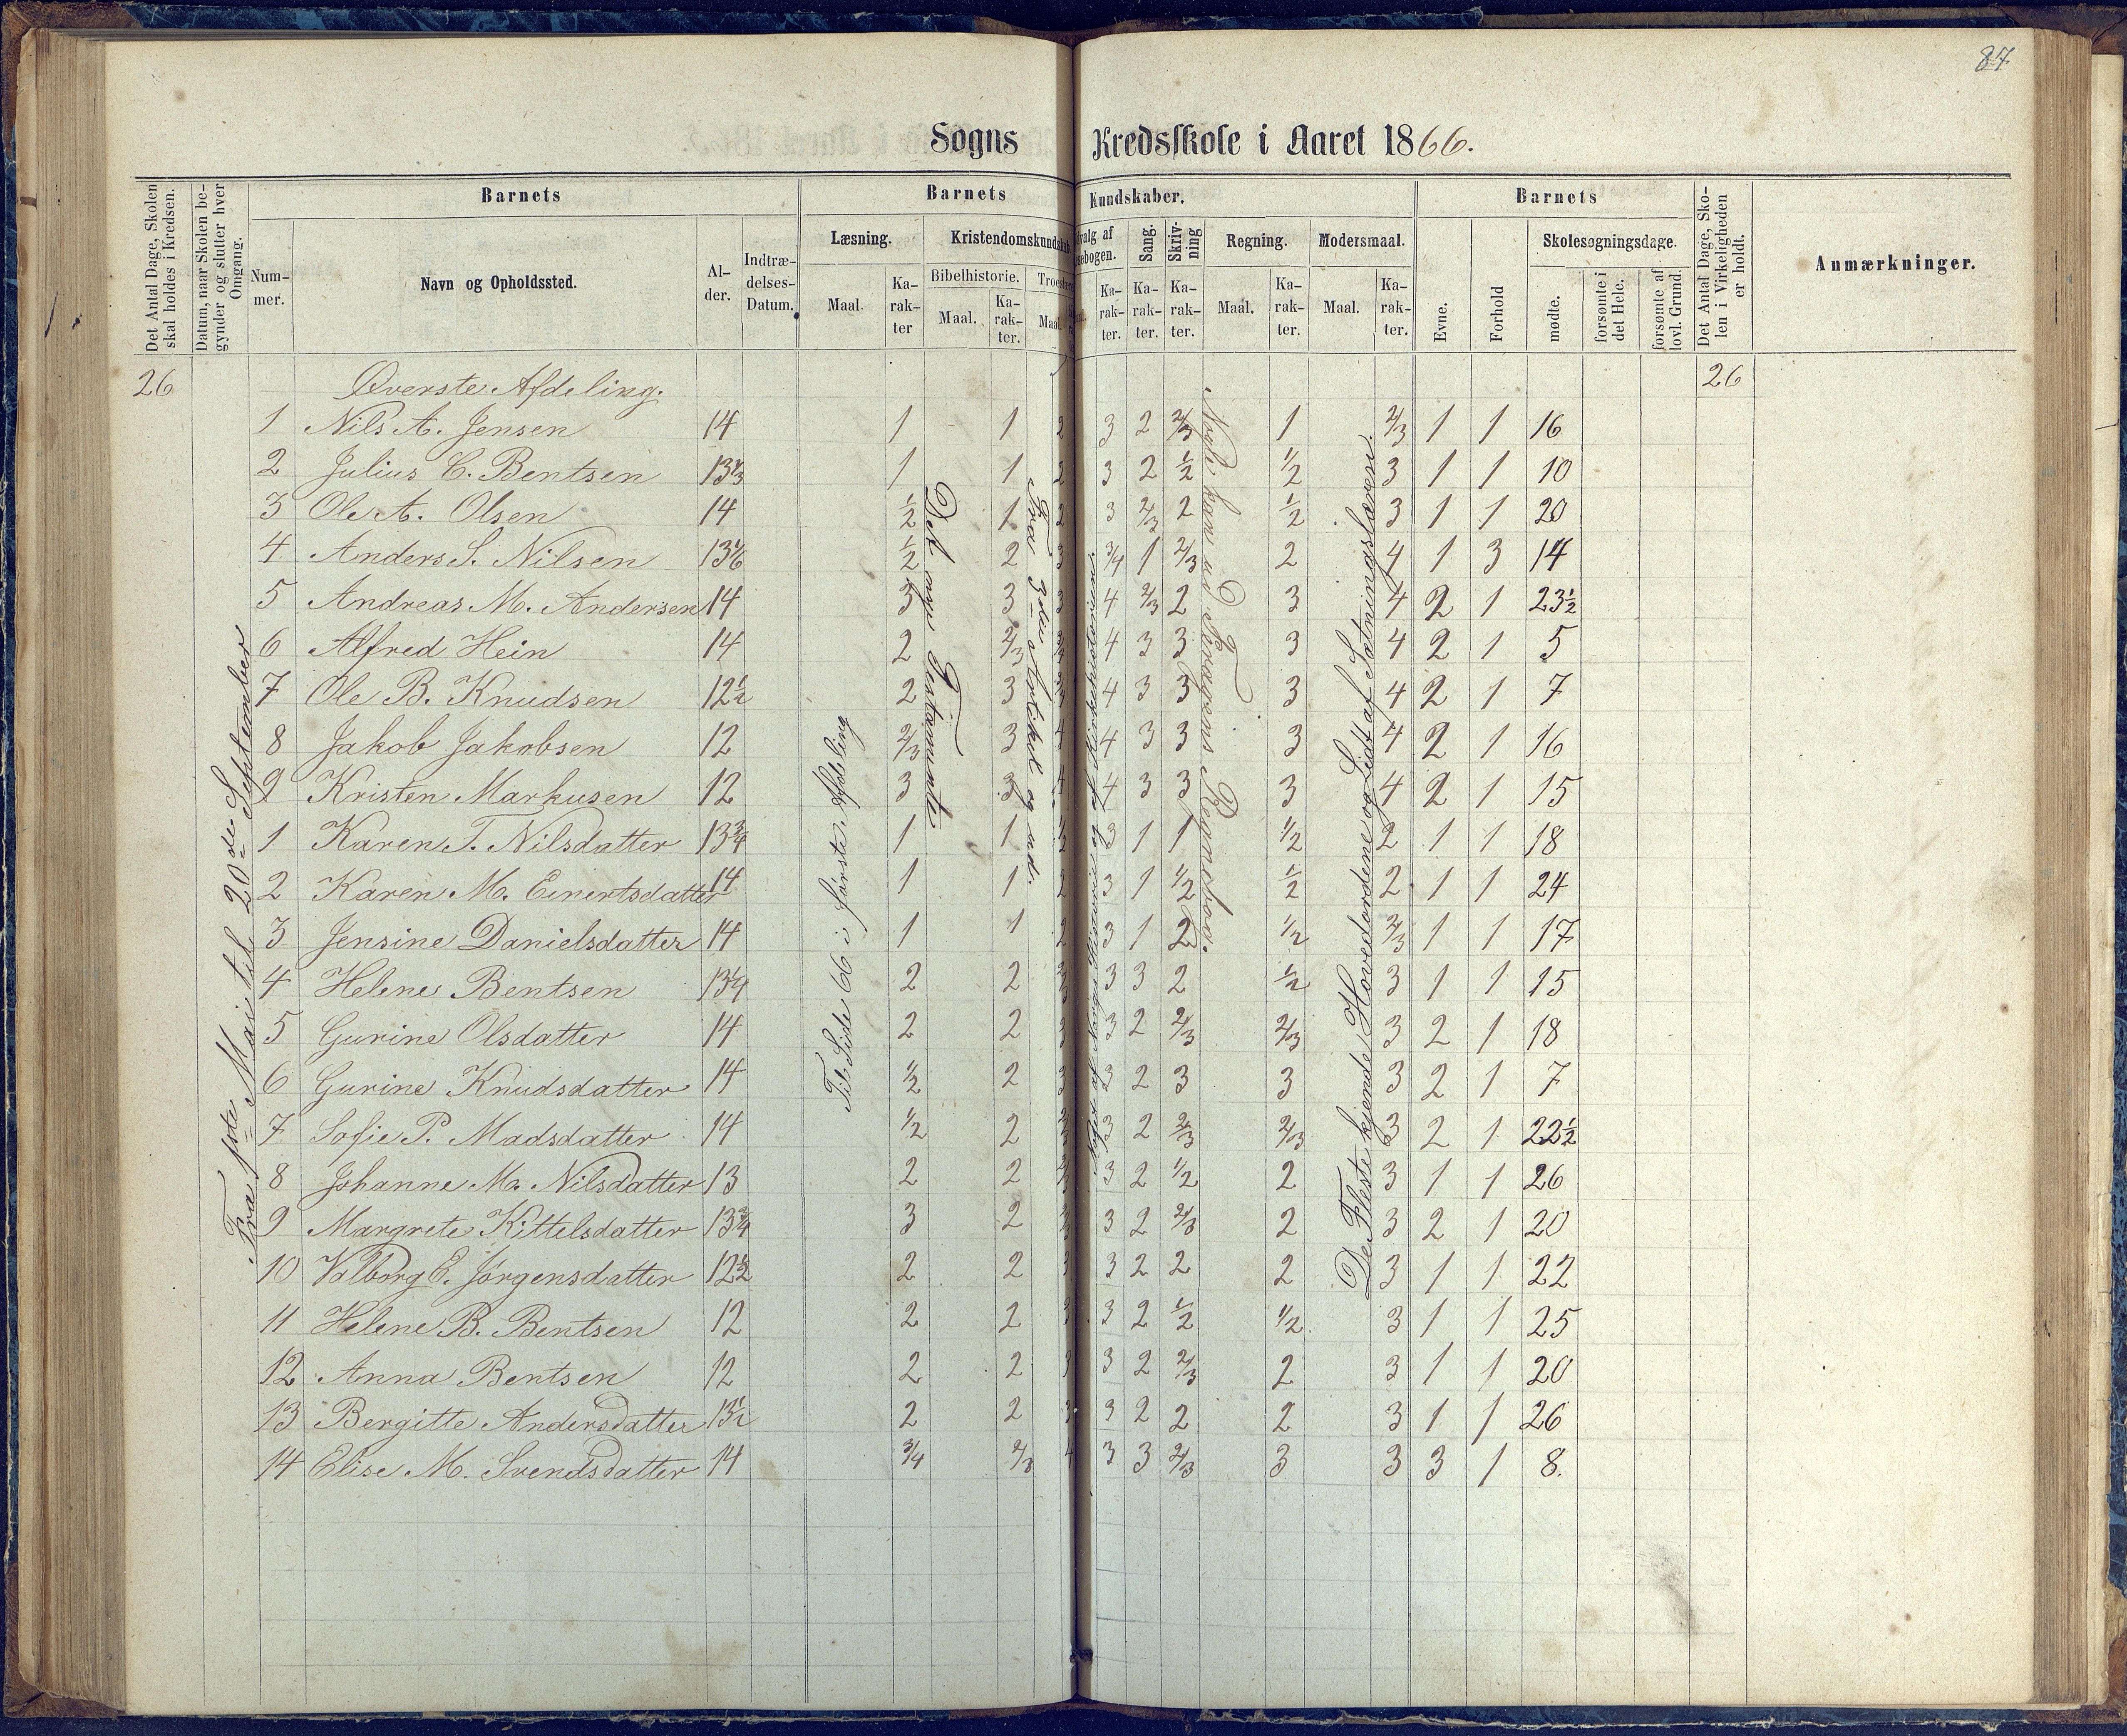 87
Sogns Kredsskole i Aaret 1866.
Det Antal Dage, Skolen skal holdes i Kredsen.
Datum, naar Skolen begynder og slutter hver Omgang.
Barnets
Nummer.
Navn og Opholdssted.
Alder.
Indtrædelses-Datum.
Barnets Kundskaber.
Læsning.
Maal.
Karakter
Kristendomskundskab
Bibelhistorie.
Maal.
Karakter.
Troeslære
Maal.
Udvalg af Læsebogen.
Karakter.
Sang.
Karakter.
Skrivning
Karakter.
Regning.
Maal.
Karakter.
Modersmaal.
Maal.
Karakter.
Barnets
Evne.
Forhold
Skolesøgningsdage.
mødte.
forsømte i det Hele.
forsømte af lovl. Grund.
Det Antal Dage, Skolen i Virkeligheden er holdt.
Anmærkninger.
26 Øverste Afdeling. 26
1 Nils A. Jensen 14 1 1 2 3 2 2/3 1 2/3 1 1 16
2 Julius C. Bentsen 13 1/3 1 1 2 3 2 1/2 1/2 3 1 1 10
3 Ole A. Olsen 14 1/2 1 2 3 2/3 2 1/2 3 1 1 20
4 Anders S. Nilsen 13 1/6 1/2 2 3 3/4 1 2/3 2 4 1 3 14
5 Andreas M. Andersen 14 3 3 3 4 2/3 2 3 4 2 1 23 1/2
6 Alfred Hein 14 2 2/3 4 3 3 3 4 2 1 5
7 Ole B. Knudsen 12 1/2 2 3 4 3 3 3 4 2 1 7
8 Jakob Jakobsen 12 2/3 3 4 4 3 3 3 4 2 1 16
9 Kristen Markusen 12 3 3 4 4 3 3 3 4 2 1 15
1 Karen T. Nilsdatter 13 3/4 1 1 1/2 3 1 1 1/2 2 1 1 18
2 Karen M. Einertsdatter 14 1 1 2 3 1 1/2 1/2 2 1 1 24
3 Jensine Danielsdatter 14 1 1 2 3 1 2 1/2 2/3 1 1 17
4 Helene Bentsen 13 1/4 2 2 2/3 3 3 2 1/2 3 1 1 15
5 Gurine Olsdatter 14 2 2 3 3 2 2/3 2/3 3 2 1 18
6 Gurine Knudsdatter 14 1/2 2 3 3 2 3 3 3 2 1 7
7 Sofie P. Madsdatter 14 1/2 2 2/3 3 2 2/3 2/3 3 2 1 22 1/2
8 Johanne M. Nilsdatter 13 2 2 2/3 3 2 1/2 2 3 1 1 26
9 Margrete Kittelsdatter 13 3/4 3 2 2/3 3 2 2/3 2 3 2 1 20
10 Valborg E. Jørgensdatter 12 1/2 2 2 3 3 2 2 2 3 1 1 22
11 Helene B. Bentsen 12 2 2 3 3 2 1/2 1/2 3 1 1 25
12 Anna Bentsen 12 2 2 3 3 2 2/3 2 3 1 1 20
13 Bergitte Andersdatter 13 1/2 2 2 3 3 2 2 2 3 1 1 26
14 Elise M. Svendsdatter 14 3/4 2/3 4 3 3 2/3 3 3 3 1 8.
Fra 1ste Mai til 20de September
Til Side 66 i første Afdeling
Det nye Testamente
Fra 3die Artikel og ud.
Nogle kan ud Forøgens Regnebog.
De Fleste kjende Hovedordene og Lidt af Sætningslæren.